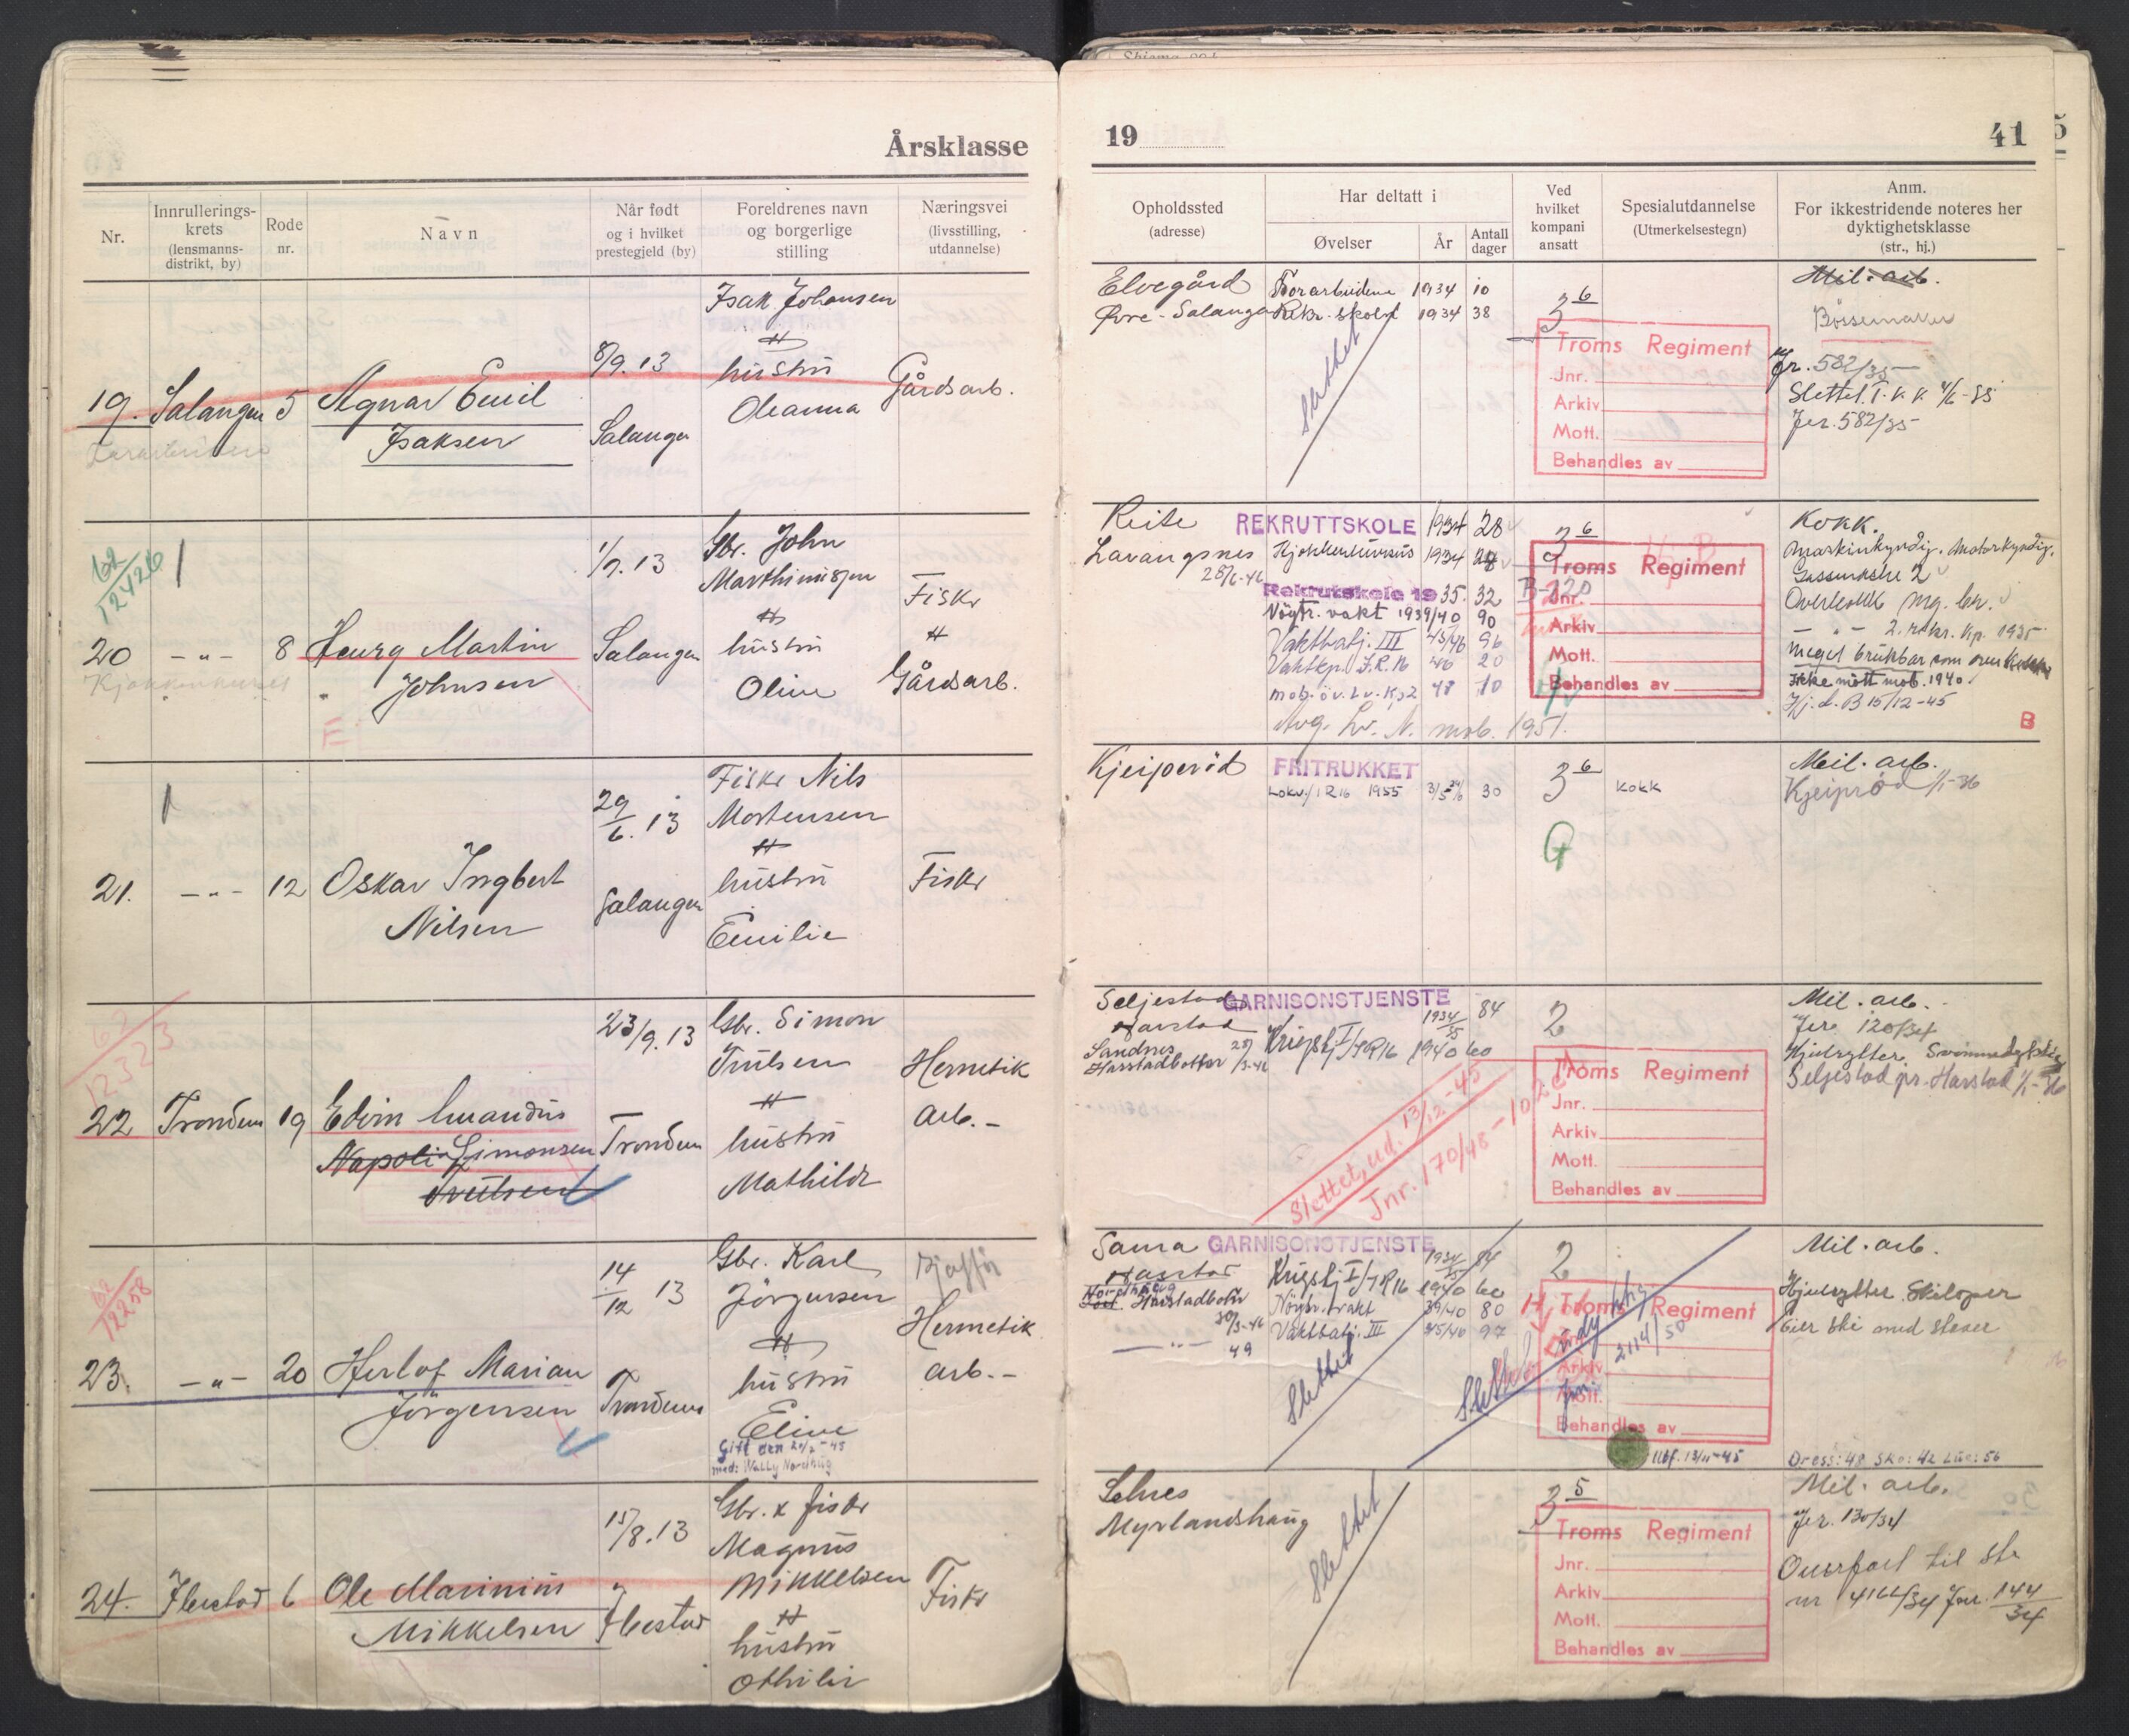 Årsklasse
Nr.
Innrullerings-
krets
(lensmanns-
distrikt, by)
Rode
nr.
Navn
Når født
og i hvilket
prestegjeld (by)
Foreldrenes navn
og borgerlige
stilling
Næringsvei
(livsstilling,
utdannelse)
19. Salangen 5
Agnar Emil
Isaksen
8/9.13
Salangen
Isak Johansen
hustru
Oleanna
Gårdsarb.
62
12426
20 -"- 8
Haurg Martin
Johnsen
E
1/7.13
Salangen
Gbr. John
hustru
Oline
Fisker
Gårdsarb.
21. -"- 12
Oskar Ingbert
Nilsen
29
6. 13
Salangen
Fisker Nils
Mortensen
hustru
Emilie
Fisker
62
12323
22 Trondenes 19
Edvin Amandus
Napoli Simonsen
Trulsen
23/9.13
Trondenes
Gbr. Simon
Trulsen
hustru
Mathilde
Hermetik
arb.-
62
12258
23. -"- 20
Herlof Marian
Jörgensen
14
12 13
Trondenes
Gbr. Karl
Jörgensen
hustru
Eline
Gift den 20/2-43
med: Wally Nordhug
Sjåfør
Hermetik
arb.-
24. Ibestad 6
Ole Marinius
Mikkelsen
15/8.13
Ibestad
Gbr. x fisker
Magnus
Mikkelsen
hustru
Othilie
Fisker
19
41
Opholdssted
(adresse)
Har deltatt i
Øvelser
År
Antall
dager
Ved
hvilket
kompani
ansatt
Spesialutdannelse
(Utmerkelsestegn)
Anm.
For ikkestridende noteres her
dyktighetsklasse
(str., hj.)
Elvegård
Øvre-Salangen
Forarbeidene 1934 10
Rekr.skolen 1934 38
Slettet
3 6
Troms Regiment
Jnr.
Arkiv
Mott.
Behandles av
Mil. arb.
Bössemaker
Jr. 582/35
Slettet T.K.K 4/6-35
Jnr. 582/35
Reite
Lavangsnes
28/6-46
REKRUTTSKOLE 1934 28
Kjøkkenkursus 1934 28
Rekrutskole 1935. 32
Nöytr. vakt 1939/40 90
Vaktbatj. III 45/46 96
Vaktkp. I.R.16 46 20
mob.öv. Lv.Kp2 48 10
Avg. Lv. N. mob. 1951.
3 6
Troms Regiment
Jnr.
Arkiv
Mott.
Behandles av
Kokk.
Maskinkyndig. Motorkyndig.
Gassmaske 2
Overkokk
2. rekr. kp. 1935
Meget brukbar som
Ikke møtt mob. 1940
Hj. d. B 15/12-45
B
Kjeiperöd
FRITRUKKET
Lokv./IR16 1955 30
3 6
G
Kokk
Mil. arb.
Kjeipröd 1/1-36
Seljestad
Harstad
Sandnes
Harstadbotn
GARNISONSTJENSTE 1934/35 84
Krigsbj I/IR16 1940 60
Slettet, ud. 13/12-45
Jnr. 170/48-10
2
Troms Regiment
Jnr.
Arkiv
Mott.
Behandles av
Mil. arb.
Jnr 120/34
Hjulrytter Svömmedyktig
Seljestad pr. Harstad 1/1-36
Sama
Harstad
Harstadbotn
30/3-46
-"- 49
GARNISONSTJENSTE 1934/35 84
Krigsbj I/IR16 1940 60
Nöytr.vakt 39/40 80
Vaktbatj. III 45/46 97
Slettet
Slettet
2
Troms Regiment
Arkiv
Mott.
Behandles av
21/4/50
Utf. 13/11-45
Mil. arb.
Hjulrytter Skilöper
Eier ski med staver
Dress: 48 Sko: 42 Lue: 56
Selnes
Myrlandshaug
Slettet
3 5
Troms Regiment
Jnr.
Arkiv
Mott.
Behandles av
Mil. arb.
Jnr. 130/34
Overført til str
nr 4166/34 Jnr. 144
34